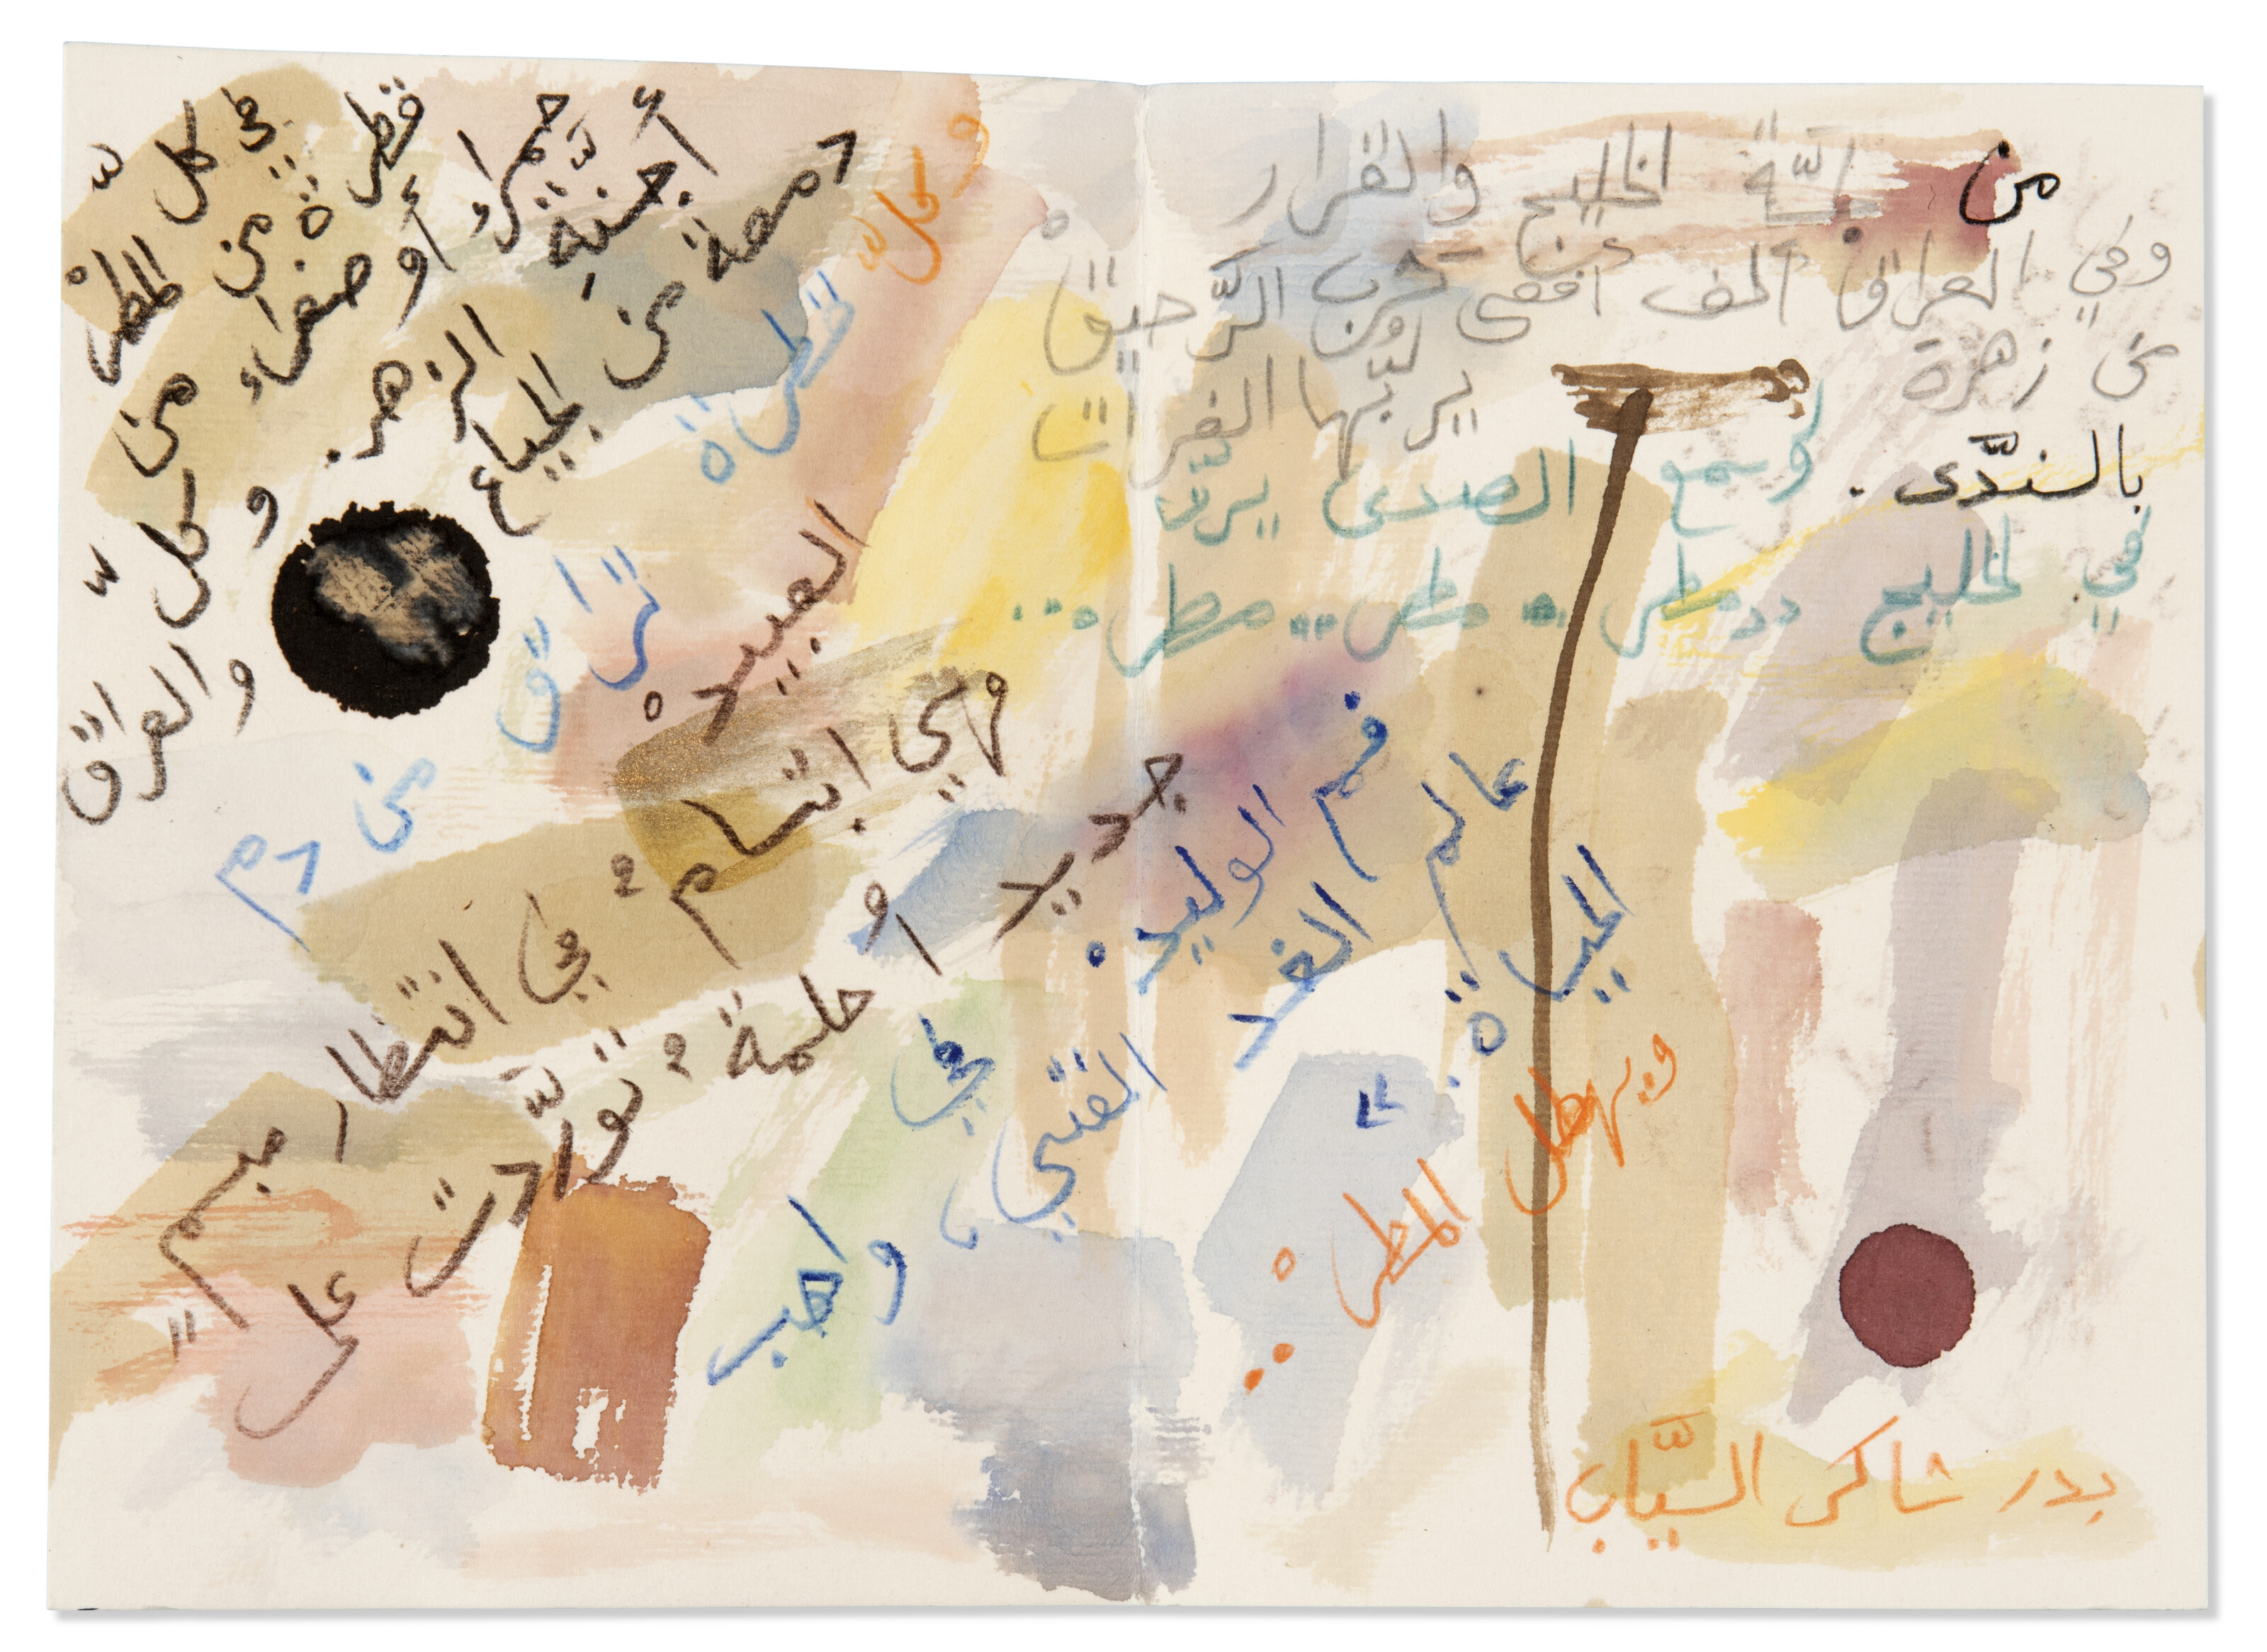 من لجّة الخليج والقرار
وفي العراق ألف أفعى تشرب الرّحيق
من زهرة يربّها الفرات
بالندّى . وأسمع الصدى يرنّ
في الخليج مطر .. مطر .. مطر ...
في كلّ قطرة من المطر
حمراء أو صفراء من أجنّة الزهر .
وكلّ دمعة من الجياع والعراق
وكلّ قطرة تراق من دم العبيد
فهي ابتسام في انتظار مبسم جديد
أو حلمة تورّدت على فم الوليد
في عالم الغد الفتي ، واهب الحياة
ويهطل المطر ..
بدر شاكر السيّاب